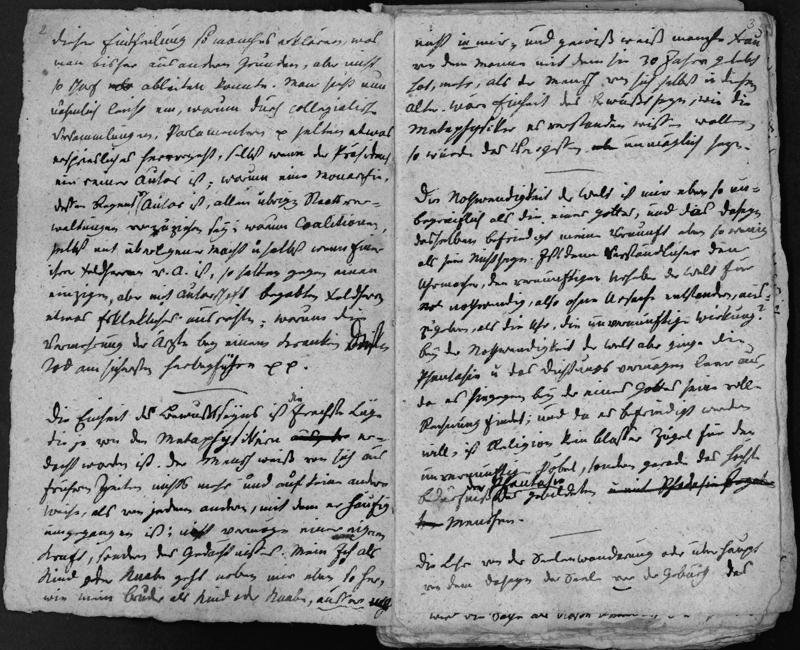 2
dieser Eintheilung so manches erklären, was
man bisher aus andern Gründen, aber nicht
so scharf ableiten konnte. Man sieht nun
nämlich leicht ein, warum durch collegialische
Versammlungen, Parlamenter pp selten etwas
ersprießliches hervorgeht, selbst wenn der Präsident
ein reiner Autos ist; warum eine Monarchie,
deren Regent Autos ist, allen übrigen Staatsver-
waltungen vorzuziehen sey; warum Coalitionen,
selbst mit überlegener Macht u selbst wenn Einer
ihrer Feldherren r. A. ist, so selten gegen einen
einzigen, aber mit Autos begabten Feldherrn
etwas Erkleckliches ausrichten; warum die
Vermehrung der Ärzte bey einem Kranken dessen
Tod am sichersten herbeyführen pp.
Die Einheit des Bewußtseyns ist die frechste Lüge
die je von den Metaphysikern er-
dacht worden ist. Der Mensch weiß von sich aus
frühern Zeiten nichts mehr und auf keine andere
Weise, als von jedem andern, mit dem er häufig
umgegangen ist; nicht vermöge einer eigenen
Kraft, sondern des Gedächtnisses. Mein Ich als
Kind oder Knabe geht neben mir eben so her,
wie mein Bruder als Kind oder Knabe, außer mir
3
nicht in mir; und gewiß weiß manche Frau
von dem Manne mit dem sie 30 Jahre gelebt
hat, mehr, als der Mensch von sich selbst in diesem
Alter. Wäre Einheit des Bewußtseyns, wie die
Metaphysiker es verstanden wissen wollen,
so würde das Vergessen unmöglich seyn.
Die Nothwendigkeit der Welt ist mir eben so un-
begreiflich als die eines Gottes, und das Daseyn
desselben befriedigt meine Vernunft eben so wenig
als sein Nichtseyn. Ist denn verständlicher den
Uhrmacher, den vernünftigen Urheber der Welt für
nothwendig, also ohne Ursache entstanden, aus-
zugeben, als die Uhr, die unvernünftige Wirkung?
bey der Nothwendigkeit der Welt aber ginge die
Phantasie u das Dichtungsvermögen leer aus,
da es hingegen bey der eines Gottes seine volle
Rechnung findet; und da es befriedigt werden
will, ist Religion kein bloßer Zügel für den
unvernünftigen Pöbel, sondern gerade das höchste
Bedürfniß der Phantasie des gebildeten
Menschen.
Die Lehre von der Seelenwanderung oder überhaupt
von dem Daseyn der Seele vor der Geburt das